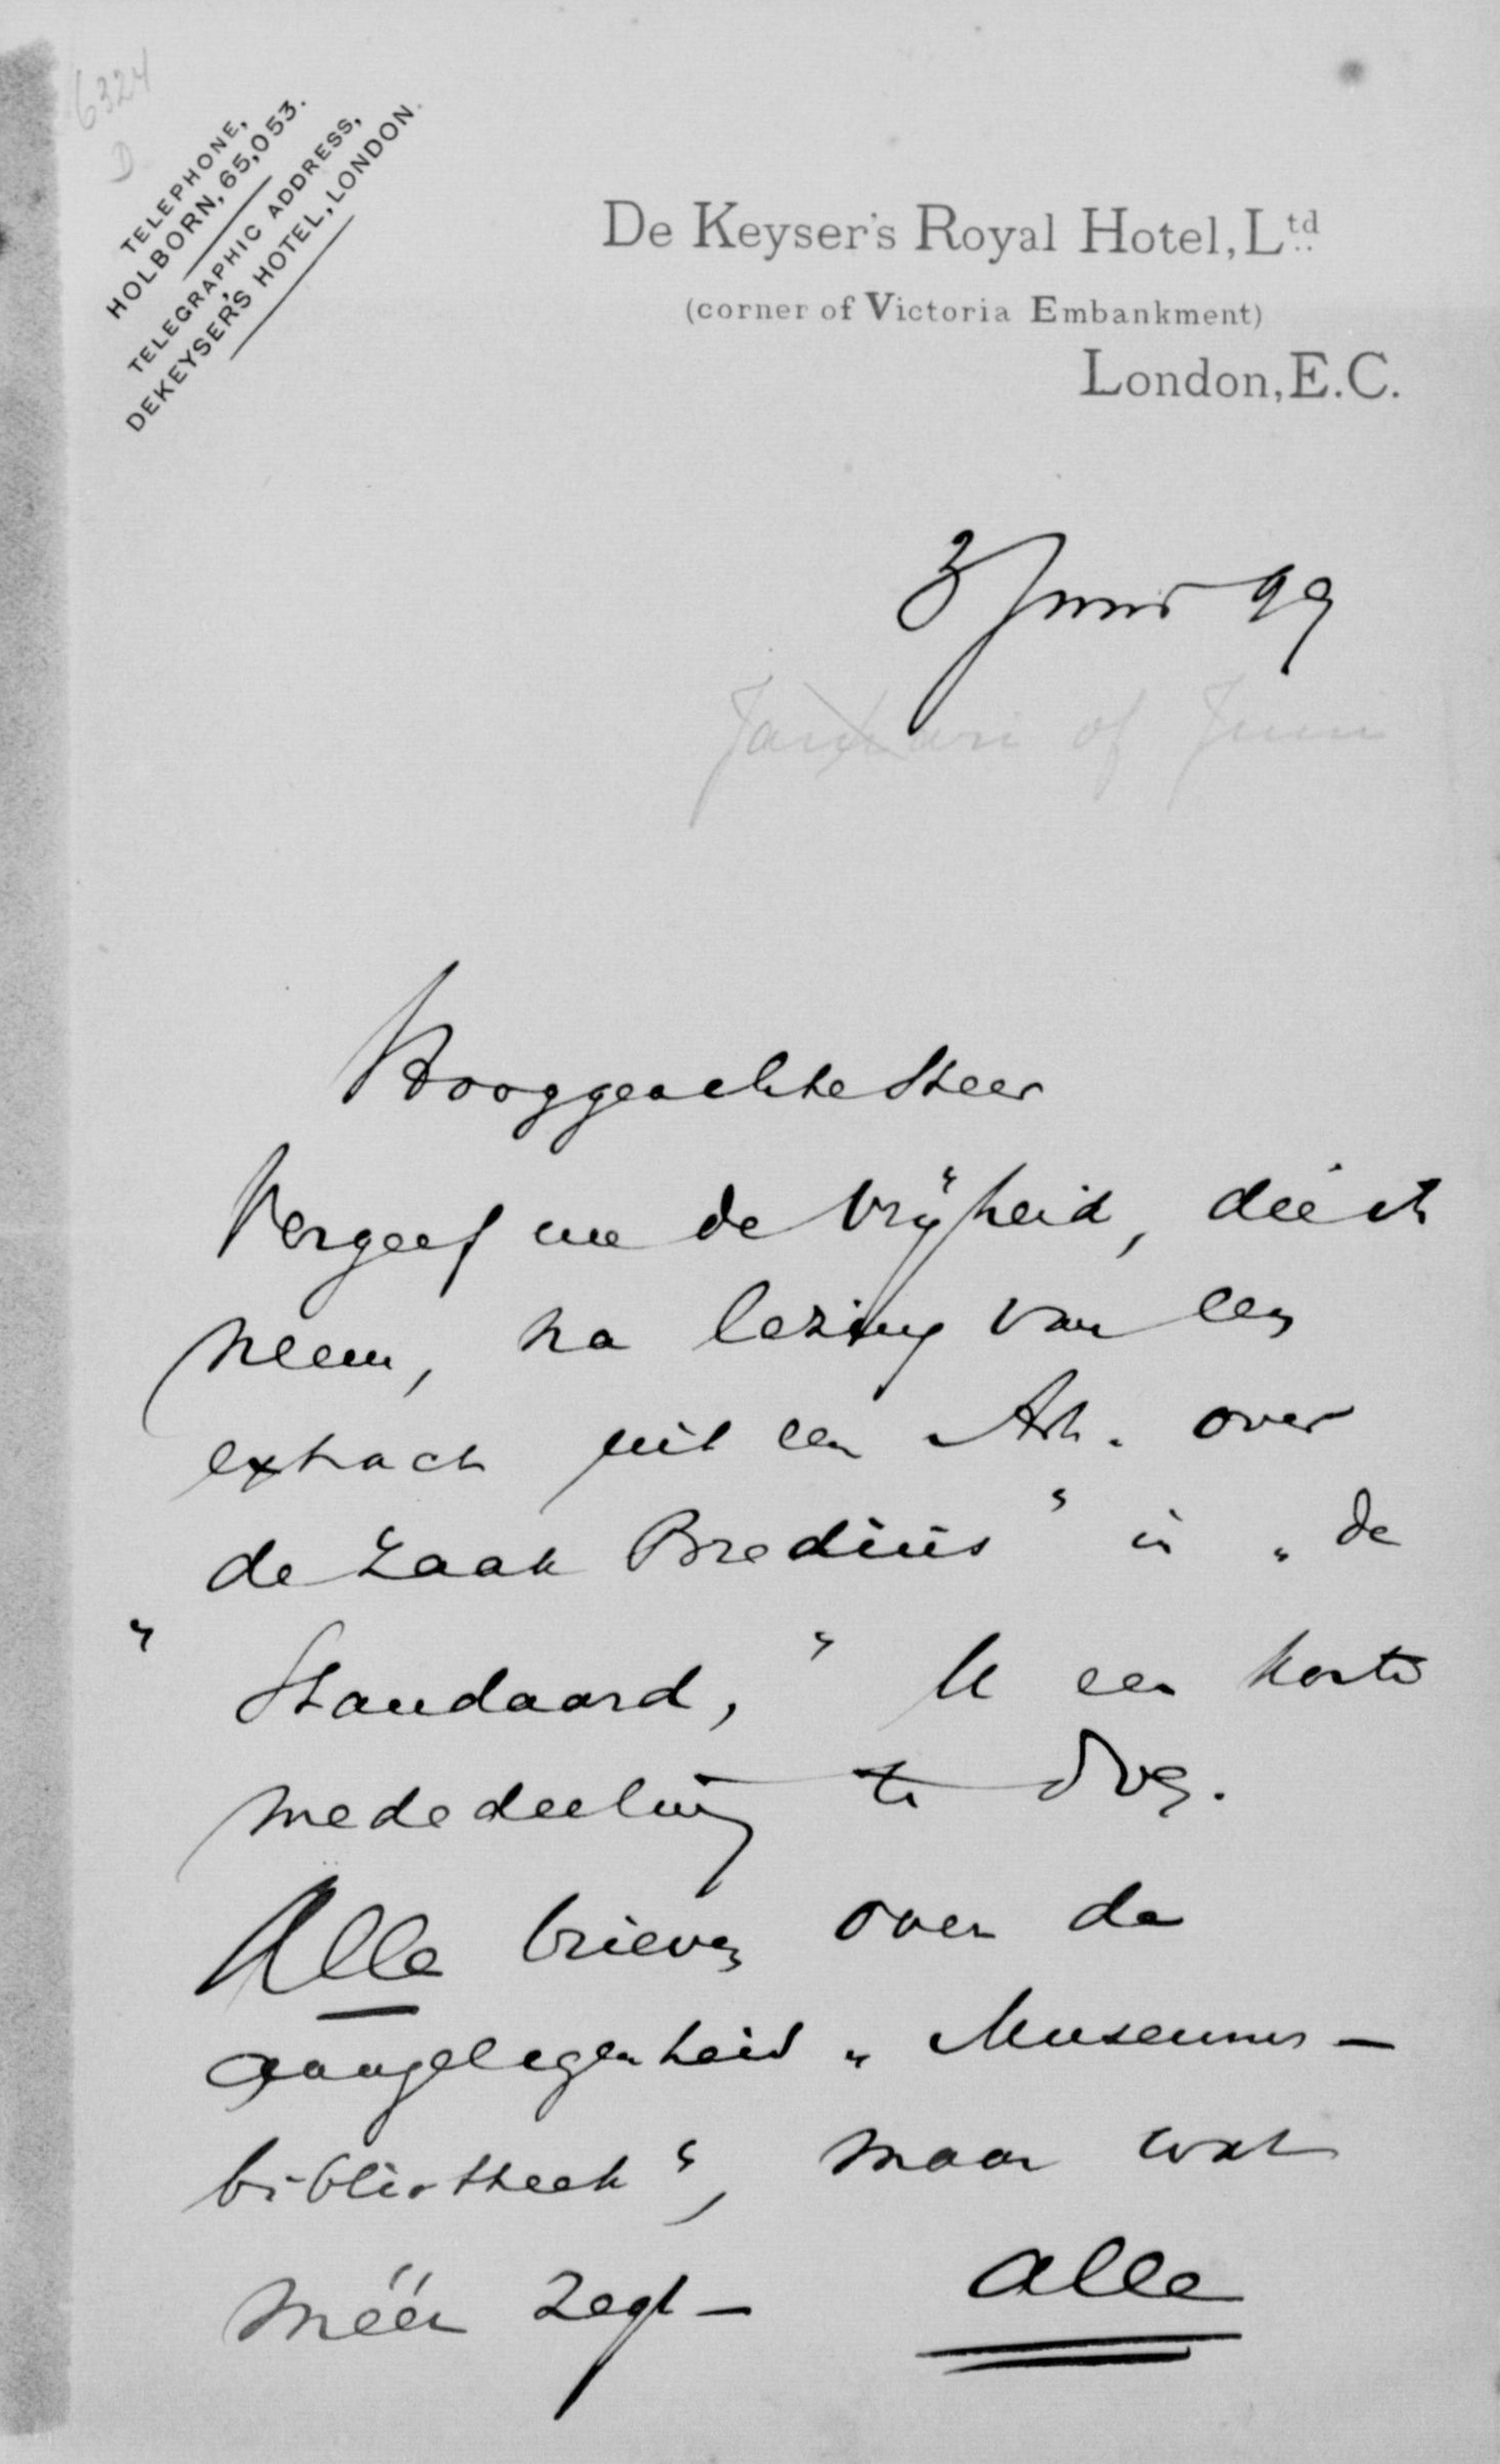 6324
D
TELEPHONE,
HOLBORN, 65,053.
TELEGRAPHIC ADDRESS,
DEKEYSER'S HOTEL, LONDON.
De Keyser's Royal Hotel, Ltd.
(corner of Victoria Embankment)
London, E.C.
3 Juni 99
Januari of Juni
Hooggeachte Heer
Vergeef me de vrijheid, die ik
neem, na lezing van een
extract uit een Art. over
de zaak Bredius" in „de
" Standaard," U een korte
mededeeling te
Alle brieven over de
aangelegenheid „Museums-
bibliotheek", maar wat
méér zegt - alle